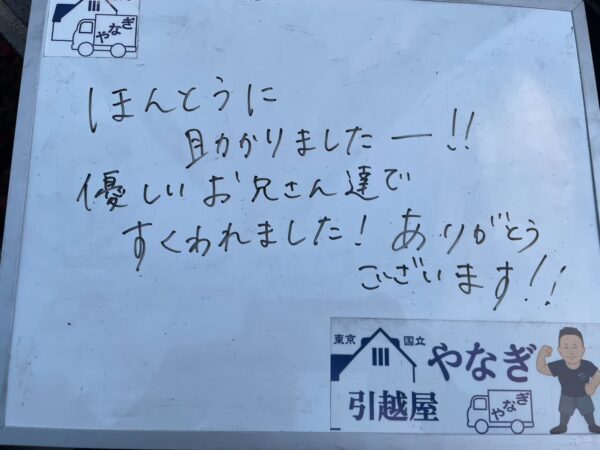 やなぎ
ほんとうに
助かりましたー!!
優しいお兄さん達で
すくわれました! ありがとう
ございます!!
東京 国立
やなぎ
引越屋
やなぎ